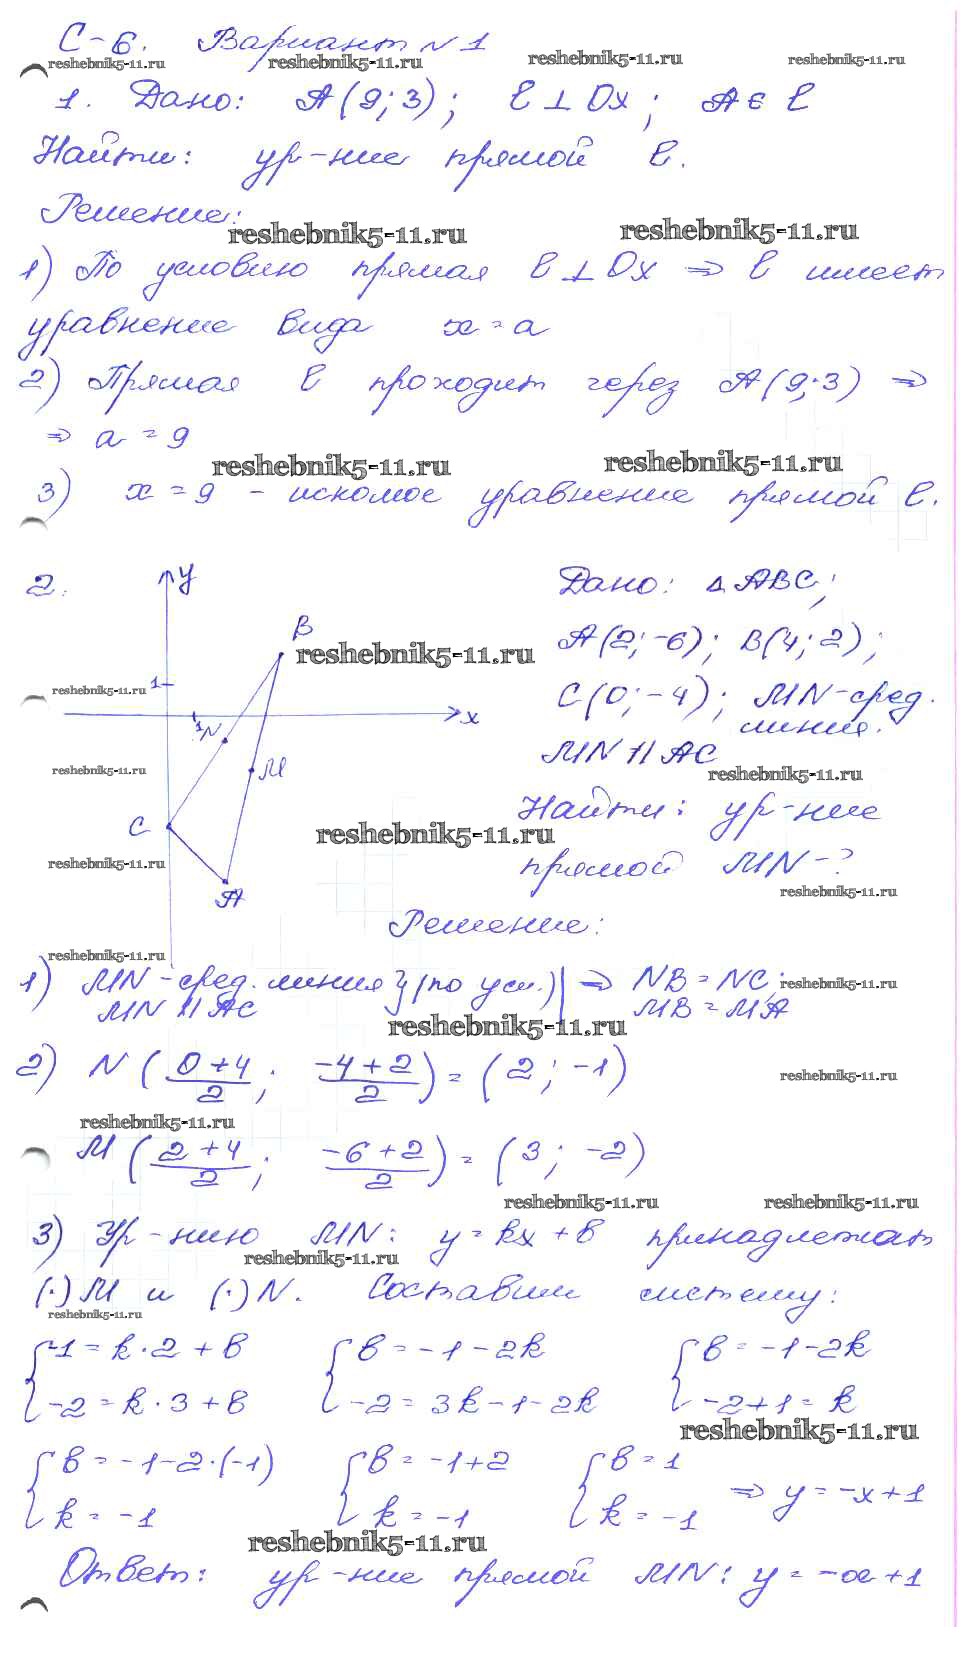 С-6. Вариант N 1
reshebnik5-11.ru reshebnik5-11.ru reshebnik5-11.ru reshebnik5-11.ru
1. Дано: A(9; 3); l ⊥ Ox; A ∈ l
Найти: ур-ние прямой l.
Решение:
reshebnik5-11.ru reshebnik5-11.ru
1) По условию прямая l ⊥ Ox ⇒ l имеет
уравнение вида x = a
2) Прямая l проходит через A(9; 3) ⇒
⇒ a = 9
reshebnik5-11.ru reshebnik5-11.ru
3) x = 9 - искомое уравнение прямой l.
2.
y
B
reshebnik5-11.ru
reshebnik5-11.ru
1
x
1
N
M
reshebnik5-11.ru
C
reshebnik5-11.ru
reshebnik5-11.ru
A
Дано: △ ABC;
A(2; -6); B(4; 2);
C(0; -4); MN-сред.
линия.
MN || AC
reshebnik5-11.ru
Найти: ур-ние
прямой MN-?
reshebnik5-11.ru
Решение:
reshebnik5-11.ru
1) MN-сред. линия } (по усл.) | ⇒ NB = NC;
MN || AC MB = MA
reshebnik5-11.ru
reshebnik5-11.ru
2) N (0+4/2; -4+2/2) = (2; -1)
reshebnik5-11.ru
reshebnik5-11.ru
M (2+4/2; -6+2/2) = (3; -2)
reshebnik5-11.ru reshebnik5-11.ru
3) Ур-нию MN: y = kx + b принадлежат
reshebnik5-11.ru
(·) M и (·) N. Составим систему:
reshebnik5-11.ru
{ -1 = k·2 + b { b = -1 - 2k { b = -1 - 2k
-2 = k·3 + b -2 = 3k - 1 - 2k -2 + 1 = k
reshebnik5-11.ru
{ b = -1 - 2·(-1) { b = -1 + 2 { b = 1
k = -1 k = -1 k = -1 ⇒ y = -x + 1
reshebnik5-11.ru
Ответ: ур-ние прямой MN: y = -x + 1